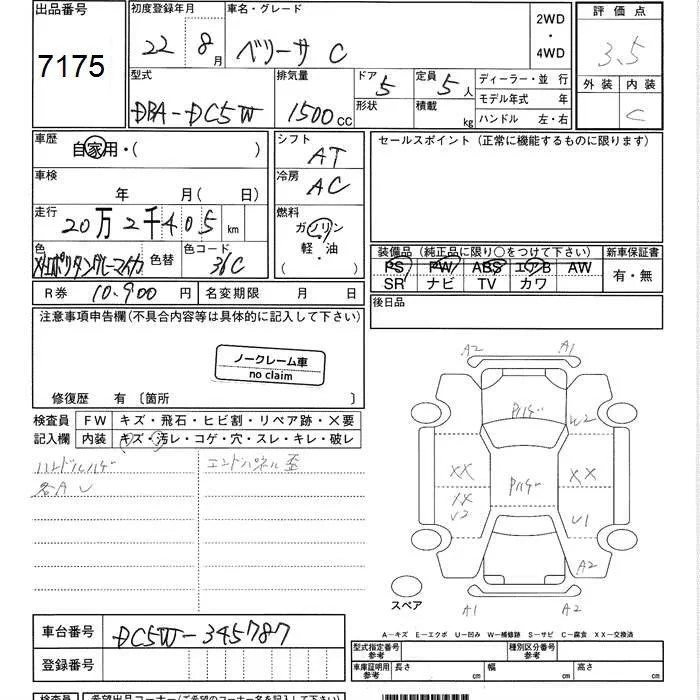 出品番号
7175
初度登録年月
22 8月
車名・グレード
ベリーサ C
2WD
・
4WD
評価点
3.5
外装 内装
C
型式
DBA-DC5W
排気量
1500CC
ドア 5
形状
定員 5人
積載 kg
ディーラー・並 行
モデル年式 年
ハンドル 左・右
車歴
自家用・( )
シフト
AT
セールスポイント (正常に機能するものに限ります)
車検
年 月(日)
冷房
AC
走行
20万2千405 km
燃料
ガソリン
軽・油
( )
色
色替
色コード
36C
装備品 (純正品に限り○をつけて下さい)
新車保証書
PS PW ABS エアB AW
SR ナビ TV カワ
有・無
R券 10.900円
名変期限 月 日
後日品
注意事項申告欄(不具合内容等は具体的に記入して下さい)
ノークレーム車
no claim
修復歴 有 〔箇所 〕
検査員
記入欄
FW キズ・飛石・ヒビ割・リペア跡・×要
内装 キズ・汚レ・コゲ・穴・スレ・キレ・破レ
ハンドルハゲ エンドパネル歪
各A U
A2 A1
Pハゲ
W2
XX XX
Pハゲ
U2 U1
A2
スペア
A1 A2
A-キズ E-エクボ U-凹み W-補修跡 S-サビ C-腐食 XX-交換済
車台番号
DC5W-345787
登録番号
型式指定番号
参考
種別区分番号
参考
車庫証明用
参考
長さ cm 幅 cm 高さ cm
検査員
希望出品コーナー(ご希望のコーナー名を記入して下さい)